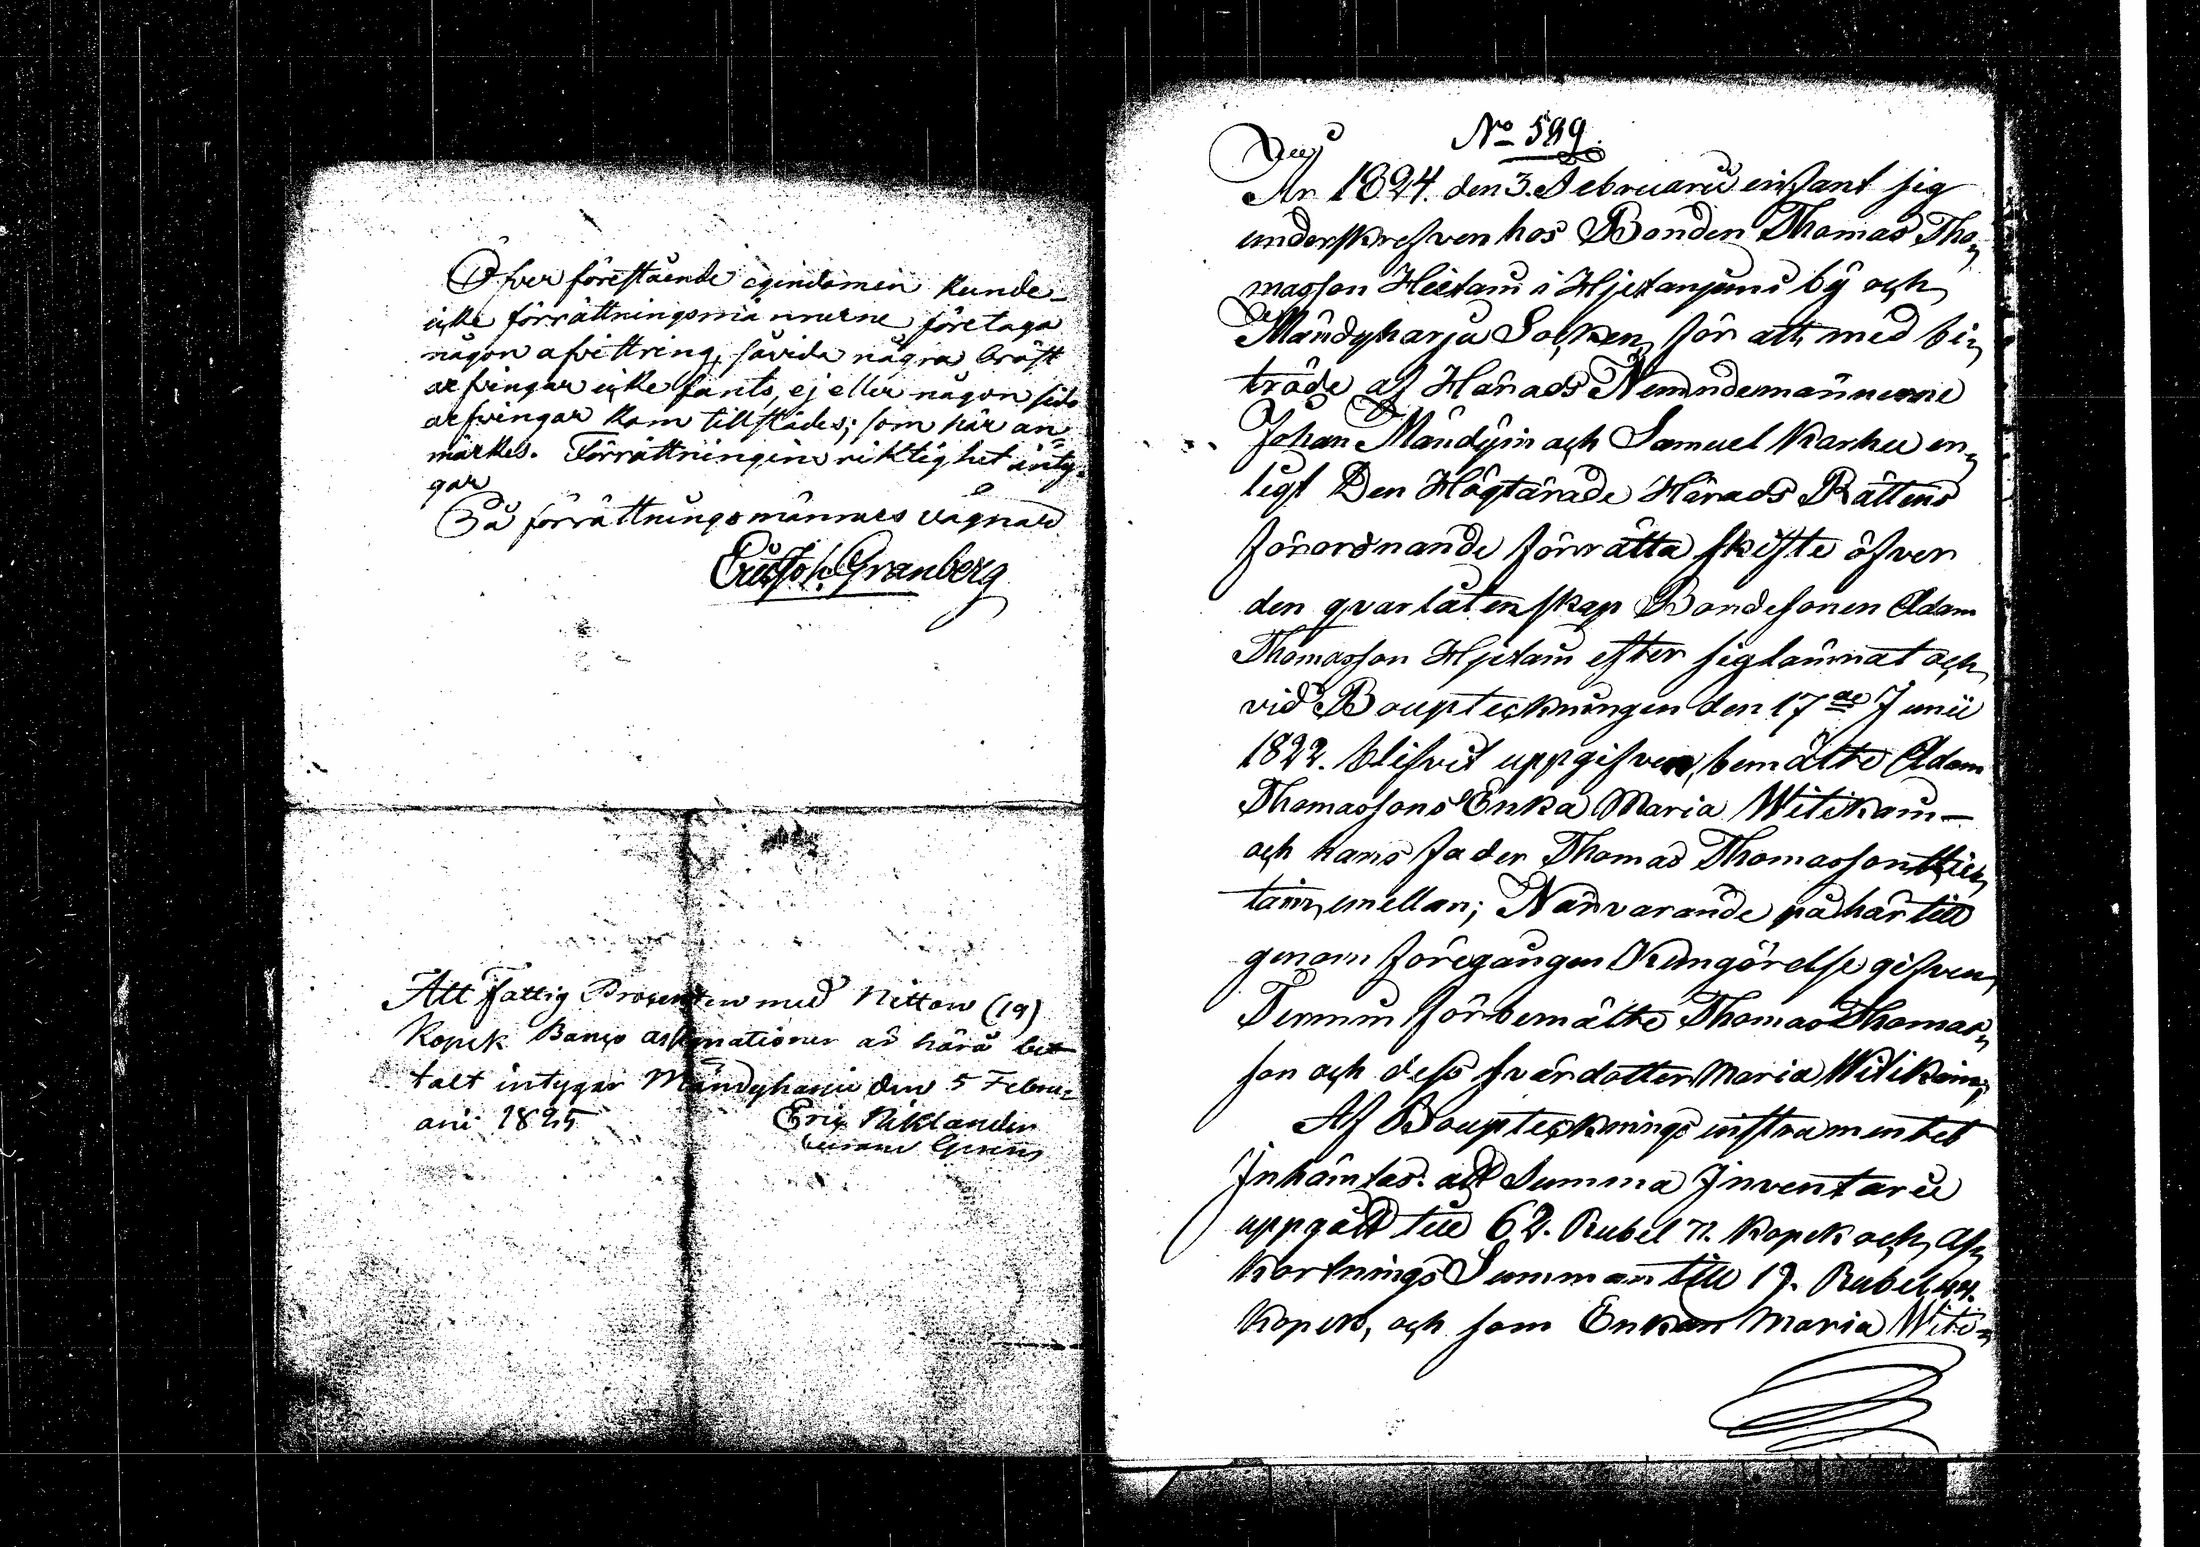 Öfver förestående egindomen kunde
icke förrättningsmännerne företaga
någon afvittring, såvida några bröst
arfvingar icke fants, ej eller någon sido
arfvingar kom tillstädes; som här an=
märkes. Förrättningens riktighet inty=
gar
På förrättningsmännes vägnar
Granberg
Att Fattig Procenten med Nitton (19)
Kopek Banco assignationer är härå be
talt intygar Mändyharju den 5 Febru=
arii 1825 Eric
No 599.
År 1824. den 3. Februarii infant sig
underskrefven hos Bonden Thomas Tho=
masson Hietain i Hjetaniemi bÿ och
Mändyharju Socken, för att med bi=
träde af Härads Nemndemännerne
Johan Mändÿin och Samuel Karhu en=
ligt Den Högtärade Härads Rättens
förordnande förrätta skifte öfver
den qvarlåtenskap Bondesonen Adam
Thomasson Hjetain efter sig lämnat och
vid Boupteckningen den 17de Junii
1822. blifvit uppgifven, bemälte Adam
Thomassons Enka Maria Witikain
och hans fader Thomas Thomasson Hie=
tain, emellan; Närvarande på här till
genom föregången Kungörelse gifven
Termin för bemälte Thomas Thomas=
son och dess svärdotter Maria Witikain;
Af Bouptecknings instrumentet
Inhämtas: att Summa Inventarii
uppgått till 62. Rubel 71. Kopek och Af=
kortnings Summan till 19. Rubel 44.
Kopek, och som Enkan Maria Witi=